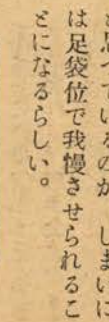 と思つているのが、しまいに
は足袋位で我慢させられるこ
とになるらしい。